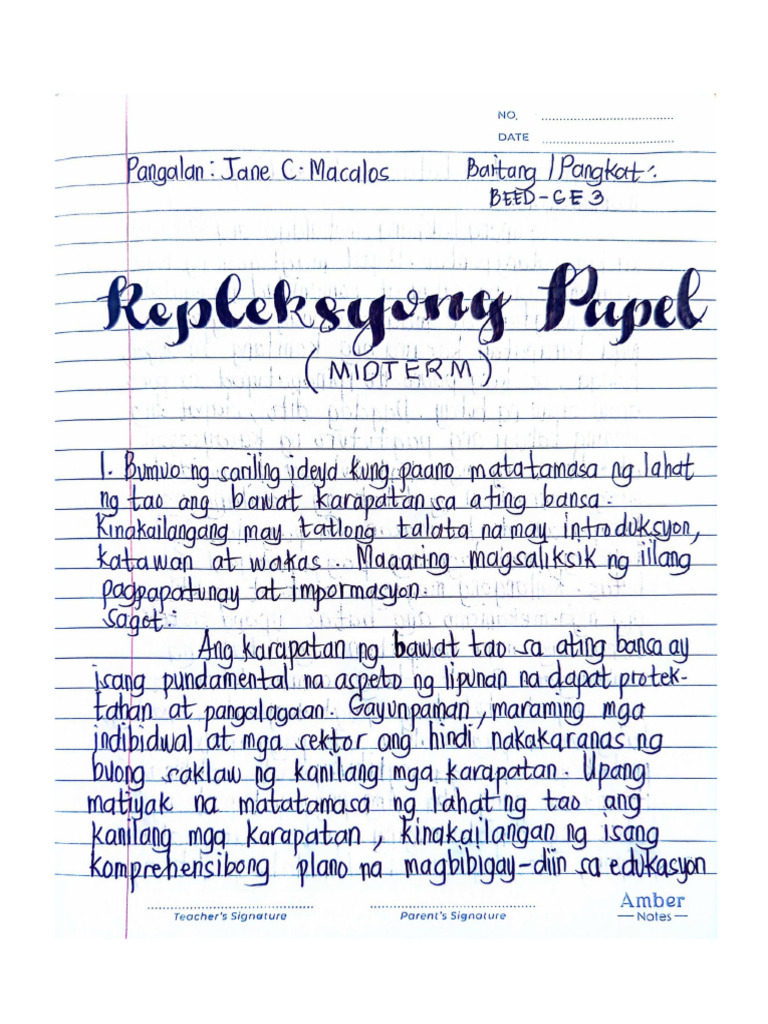 NO. ........................
DATE ........................
Pangalan: Jane C. Macalos Baitang / Pangkat:
BEED-GE3
Repleksyong Papel
(MIDTERM)
1. Bumuo ng sariling ideya kung paano matatamasa ng lahat
ng tao ang bawat karapatan sa ating bansa.
Kinakailangang may tatlong talata na may introduksyon,
katawan at wakas. Maaaring magsaliksik ng iilang
pagpapatunay at impormasyon.
Sagot:
Ang karapatan ng bawat tao sa ating bansa ay
isang pundamental na aspeto ng lipunan na dapat protek-
tahan at pangalagaan. Gayunpaman, maraming mga
indibidwal at mga sektor ang hindi nakakaranas ng
buong saklaw ng kanilang mga karapatan. Upang
matiyak na matatamasa ng lahat ng tao ang
kanilang mga karapatan, kinakailangan ng isang
komprehensibong plano na magbibigay-diin sa edukasyon
Teacher's Signature Parent's Signature Amber
Notes